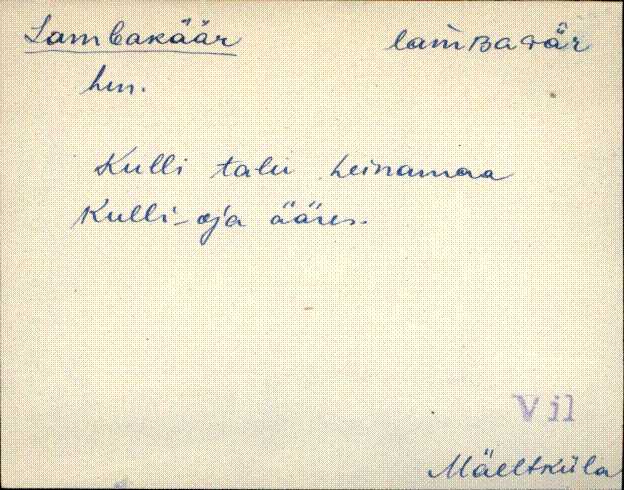 Lambakäär lam̀ʙaɢä̂r
hm.
Kulli talu heinamaa
Kulli-oja ääres.
Vil
Mäeltküla